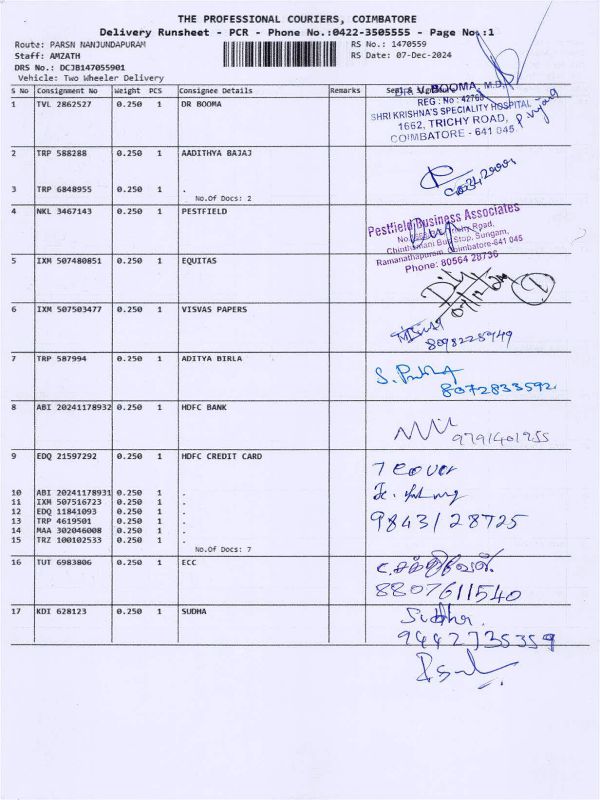 THE PROFESSIONAL COURIERS, COIMBATORE
Delivery Runsheet - PCR - Phone No.:0422-3505555 - Page No.:1
Route: PARSN NANJUNDAPURAM RS No.: 1470559
Staff: AMZATH RS Date: 07-Dec-2024
DRS No.: DCJB147055901
Vehicle: Two Wheeler Delivery
S No Consignment No Weight PCS Consignee Details Remarks Seal & Signature
1 TVL 2862527 0.250 1 DR BOOMA
DR. V. BOOMA, M.D.,
REG : No : 42760
SHRI KRISHNA'S SPECIALITY HOSPITAL
1662, TRICHY ROAD,
COIMBATORE - 641 045.
2 TRP 588288 0.250 1 AADITHYA BAJAJ
3 TRP 6848955 0.250 1 .
No.Of Docs: 2
4 NKL 3467143 0.250 1 PESTFIELD
Pestfield Business Associates
Road,
Chinthamani Bus Stop, Sungam,
Ramanathapuram, Coimbatore-641 045
Phone: 80564 28736
5 IXM 507480851 0.250 1 EQUITAS
07/12/24
6 IXM 507503477 0.250 1 VISVAS PAPERS
8098228949
7 TRP 587994 0.250 1 ADITYA BIRLA
8072833592
8 ABI 20241178932 0.250 1 HDFC BANK
9791401955
9 EDQ 21597292 0.250 1 HDFC CREDIT CARD
7 cover
10 ABI 20241178931 0.250 1 .
11 IXM 507516723 0.250 1 .
12 EDQ 11841093 0.250 1 .
13 TRP 4619501 0.250 1 .
14 MAA 302046008 0.250 1 .
15 TRZ 100102533 0.250 1 .
No.Of Docs: 7
9843128725
16 TUT 6983806 0.250 1 ECC
8807611540
17 KDI 628123 0.250 1 SUDHA
Sudha
9442735359